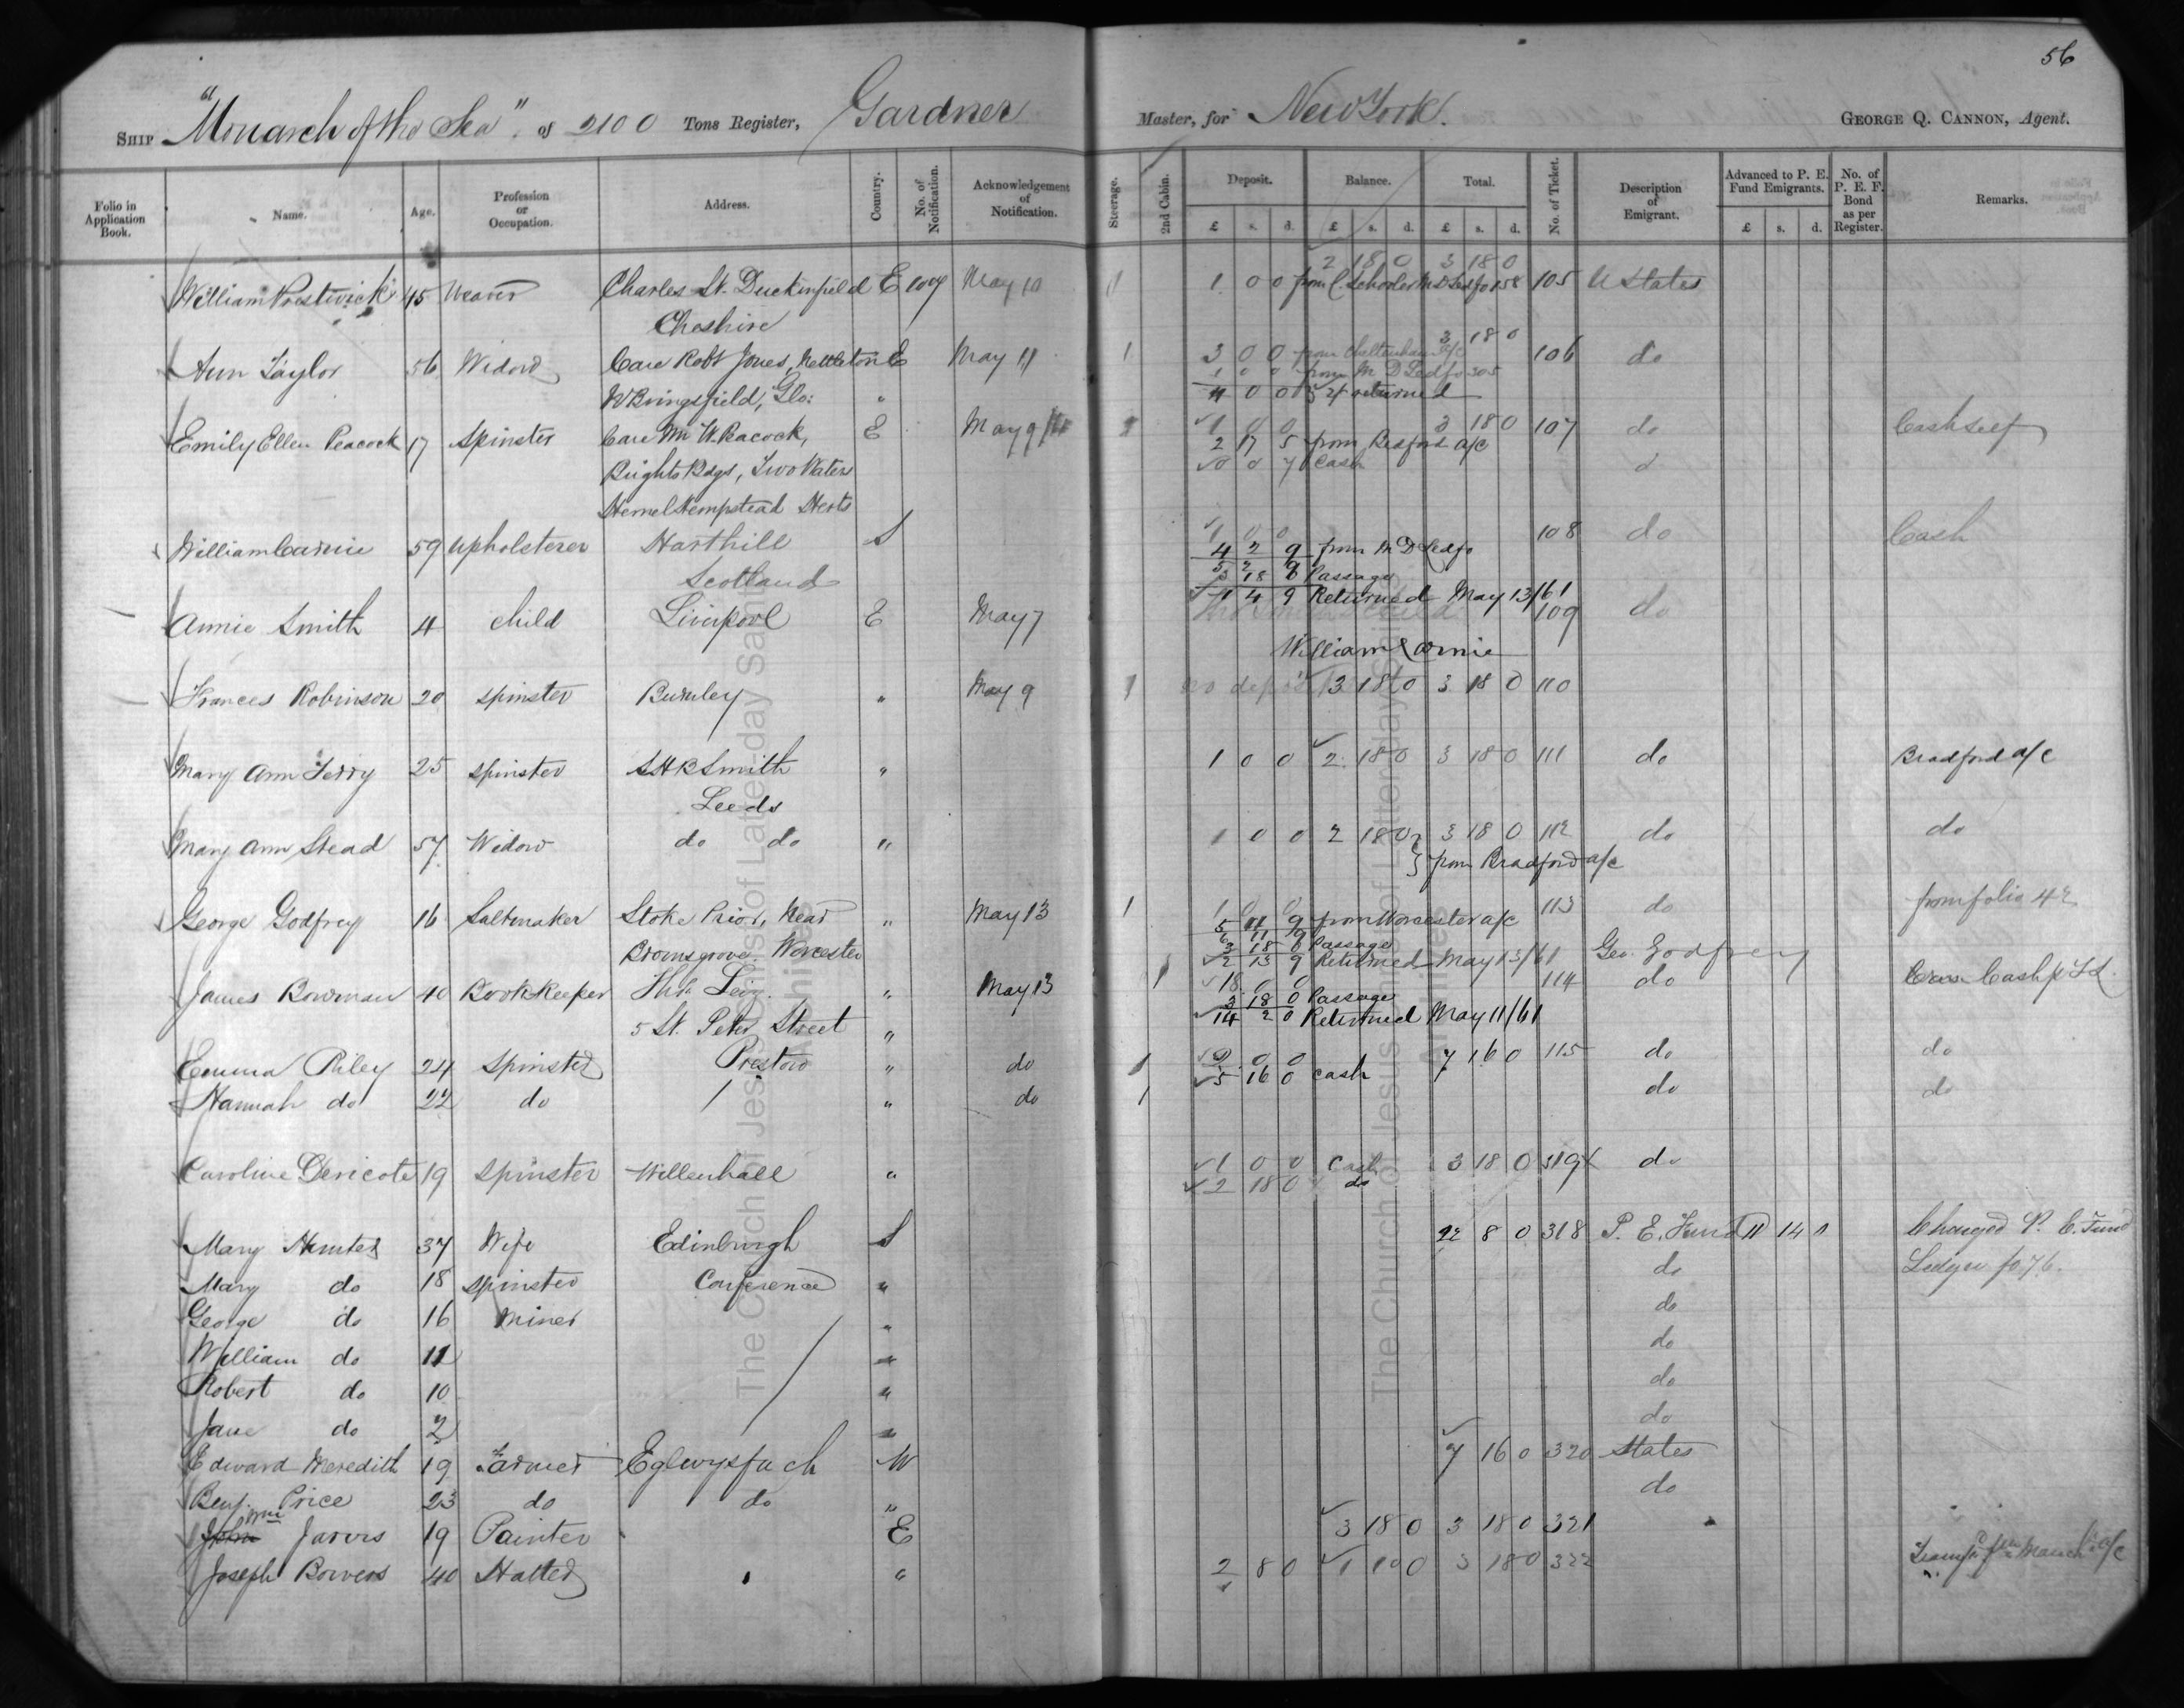 56
SHIP "Monarch of the Sea", of 2100 Tons Register, Gardner Master, for New York. GEORGE Q. CANNON, Agent.
Folio in Application Book. Name. Age. Profession or Occupation. Address. Country. No. of Notification. Acknowledgement of Notification. Steerage. 2nd Cabin. Deposit. Balance. Total. No. of Ticket. Description of Emigrant. Advanced to P. E. Fund Emigrants. No. of P. E. F. Bond as per Register. Remarks.
£ s. d. £ s. d. £ s. d. £ s. d.
2 18 0 3 18 0
William Prestwick 45 Weaver Charles St. Duckinfield E 1009 May 10 1 1 0 0 from 158 105 U States
Cheshire
3 18 0
Ann Taylor 56 Widow Care Robt Jones, Nettleton E May 11 1 3 0 0 from Cheltenham a/c 106 do
1 0 0 from M D Ledfo 305
Glo: " 4 0 0 returned
Emily Ellen Peacock 17 Spinster Care Mr W. Peacock, E May 9 1 1 0 0 3 18 0 107 do Cash self
2 17 5 from Bedford a/c
Brights Bdgs, Two Waters 0 0 7 Cash
Hemel Hempstead Herts
William Carnie 59 Upholsterer Harthill S 1 0 0 108 do Cash
4 2 9 from M D Ledfo
5 2 9
Scotland 3 18 0 Passage
1 4 9 Returned May 13/61
Annie Smith 4 child Liverpool E May 7 109 do
William Carnie
Frances Robinson 20 spinster Burnley " May 9 1 no deposit 3 18 0 3 18 0 110
Mary Ann Terry 25 spinster S H B Smith " 1 0 0 2 18 0 3 18 0 111 do Bradford a/c
Leeds
Mary Ann Stead 57 Widow do do " 1 0 0 2 18 0 3 18 0 112 do do
from Bradford a/c
George Godfrey 16 Saltmaker Stoke Prior, Near " May 13 1 1 0 0 113 do from folio 42
5 11 9 from Worcester a/c
6 11 9
Bromsgrove. Worcester 3 18 0 Passage
2 13 9 Returned May 13/61 Geo. Godfrey
James Bowman 40 Bookkeeper " May 13 1 18 0 0 114 do Cash
3 18 0 Passage
5 St. Peter Street " 14 2 0 Returned May 11/61
Emma Riley 24 Spinster Preston " do 1 2 0 0 7 16 0 115 do do
5 16 0 cash
Hannah do 22 do " do 1 do do
Caroline Dericote 19 spinster Willenhall " 1 0 0 Cash 3 18 0 319 do
2 18 0 do
Mary Hunter 37 Wife Edinburgh S 22 8 0 318 P. E. Fund 11 14 0 Charged P. E. Fund
Mary do 18 spinster Conference " do Ledger fo 76.
George do 16 Miner " do
William do 11 " do
Robert do 10 " do
Jane do 2 " do
Edward Meredith 19 Farmer Eglwysfach W 7 16 0 320 States
Benj. Price 23 do do " do
Wm
John Jarvis 19 Painter E 3 18 0 3 18 0 321
Joseph Bowers 40 Hatter " 2 8 0 1 10 0 3 18 0 322
The Church of Jesus Christ of Latter-day Saints
Archives
The Church of Jesus Christ of Latter-day Saints
Archives